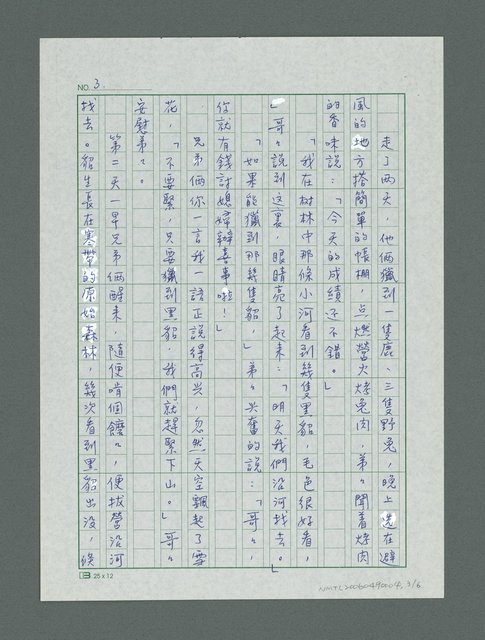 NO. 3.
走了两天，他俩獵到一隻鹿、三隻野兎，晚上选在避
風的地方搭簡單的帳棚，点燃營火烤兎肉，弟々聞着烤肉
的香味說：「今天的成績还不錯。」
「我在树林中那條小河看到幾隻黑貂，毛色很好看，
」哥々說到这裏，眼睛亮了起来：「明天我們沿河找去。
「如果能獵到那幾隻貂，」弟々兴奮的說：「哥々，
你就有錢討媳婦辦喜事啦！」
兄弟俩你一言我一語正說得高兴，忽然天空飄起了雪
花，「不要緊，只要獵到黑貂，我們就趕緊下山。」哥々
安慰弟々。
第二天一早兄弟俩醒来，隨便啃個饝々，便拔營沿河
找去。貂生長在寒帶的原始森林，幾次看到黑貂出没，候
25 x 12
NMTL20060490004, 3/6